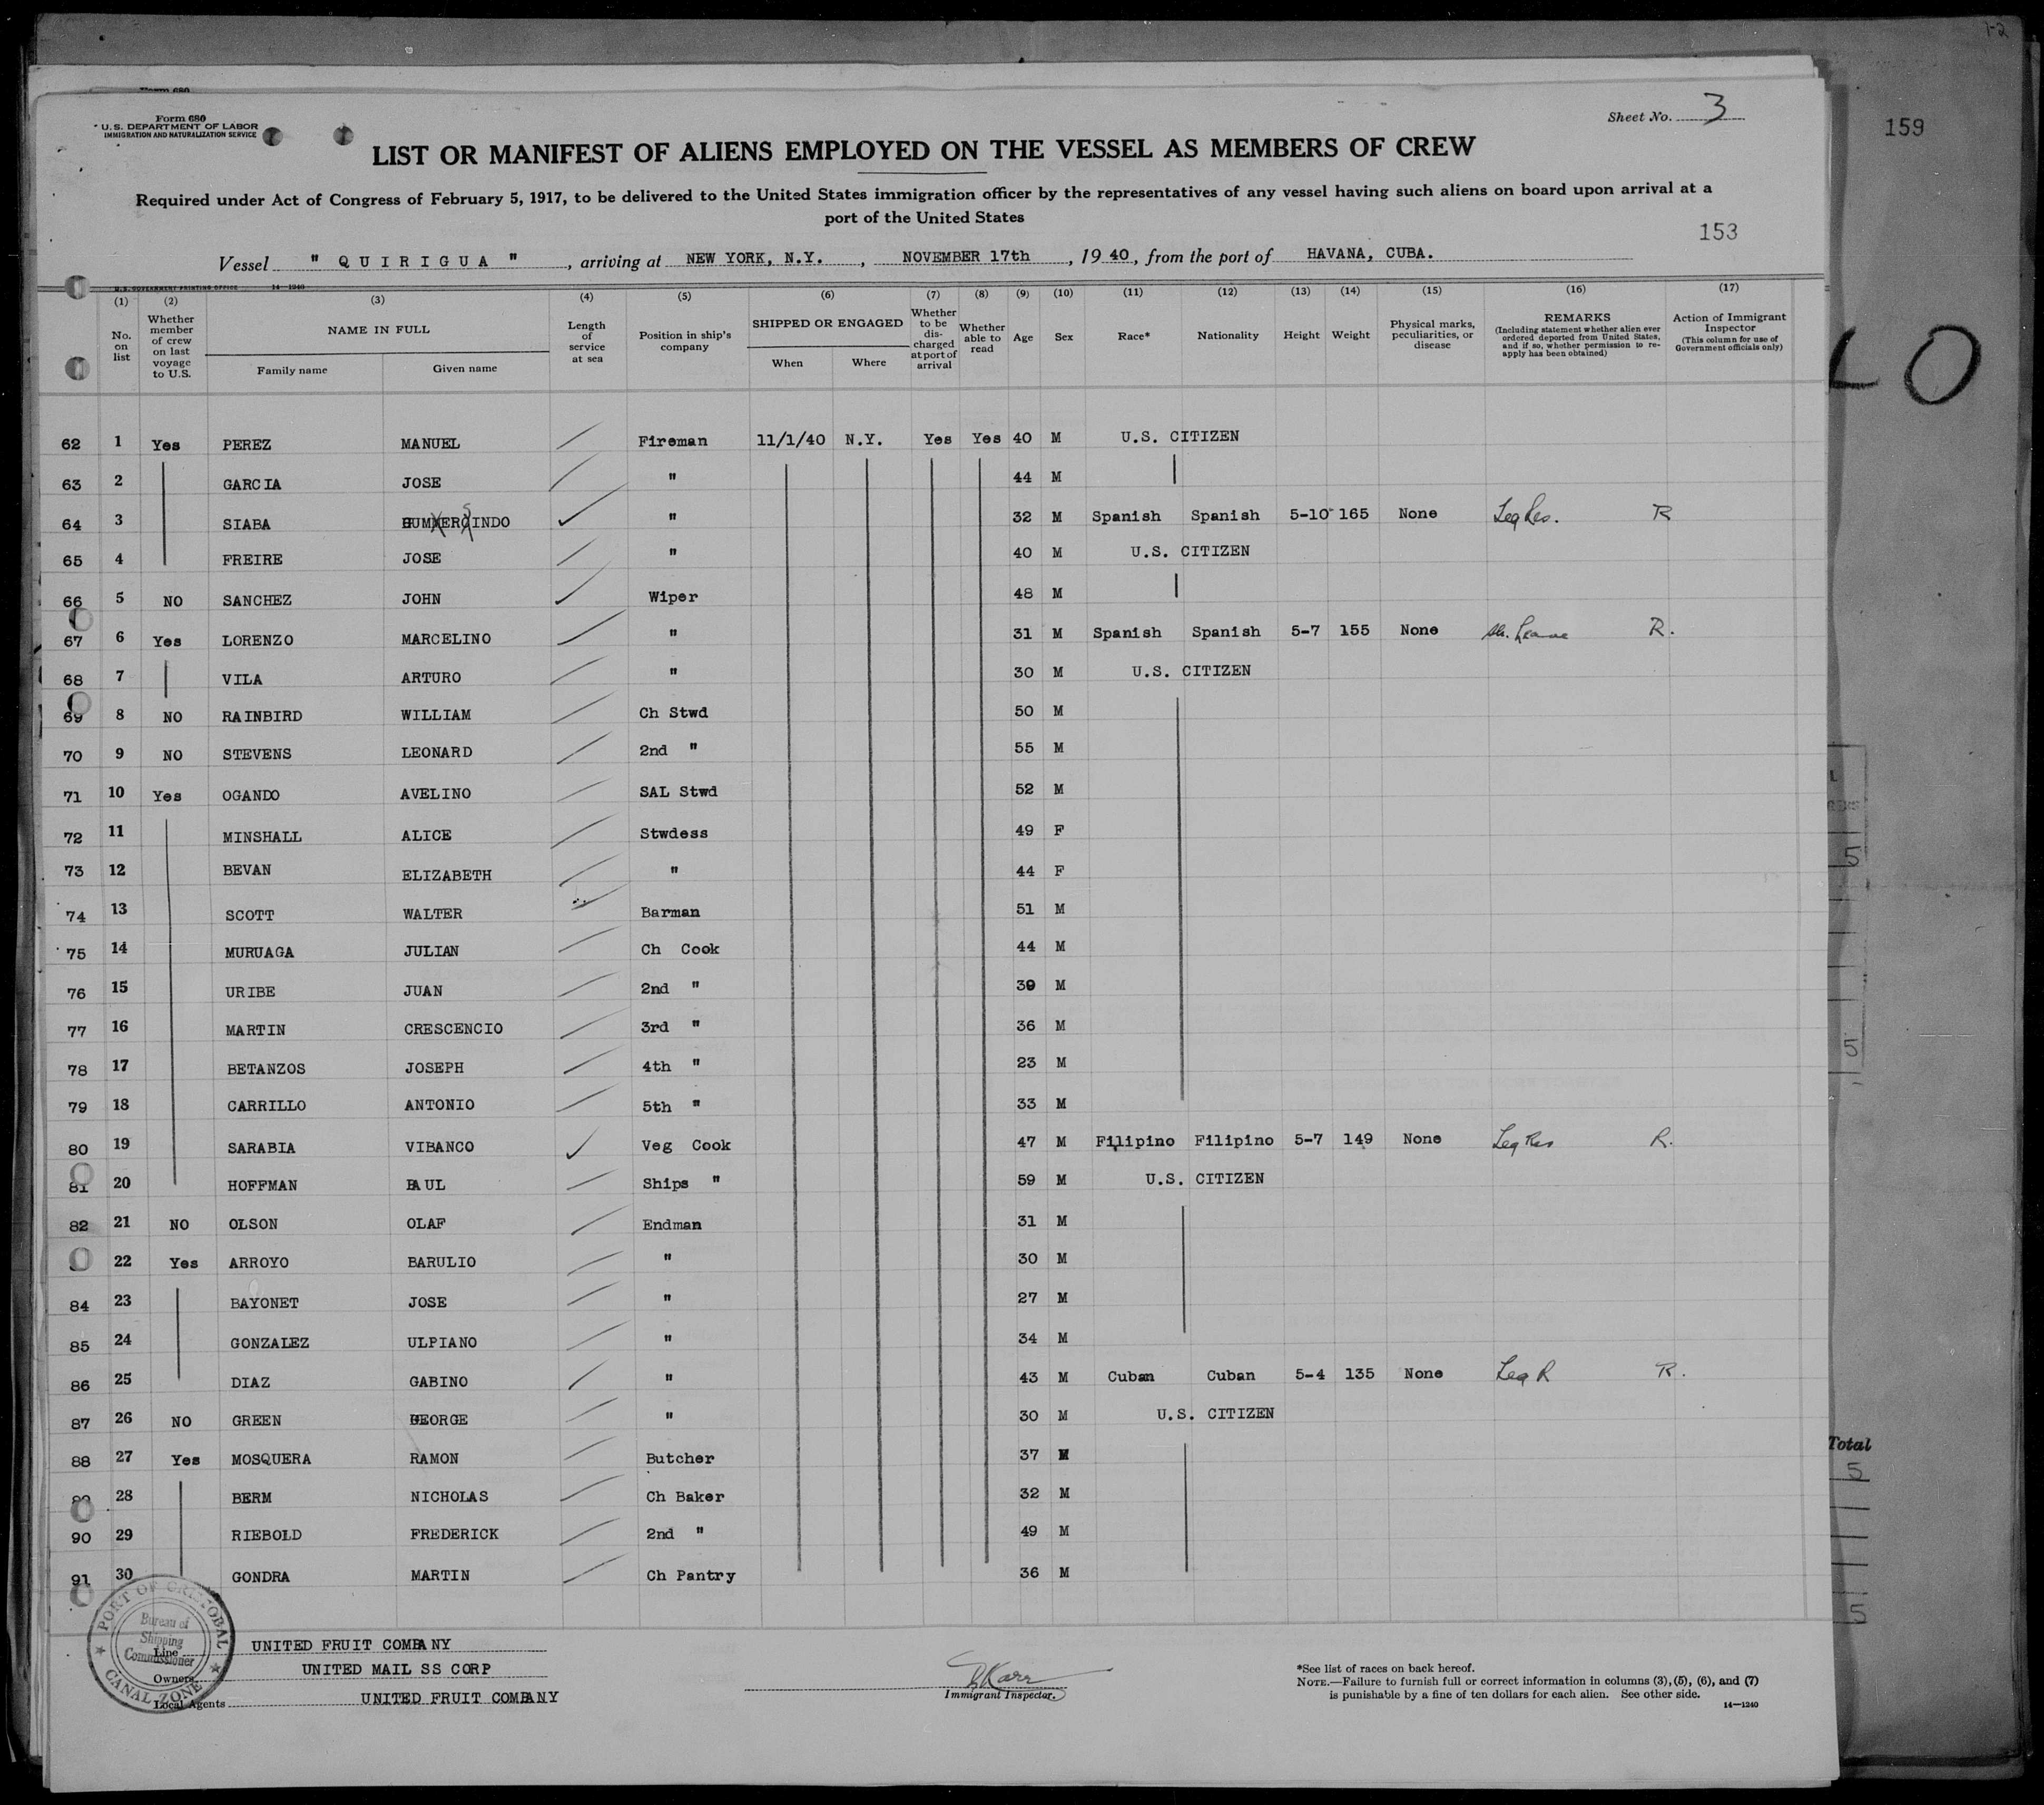 1-2
Form 680
Form 680
U.S. DEPARTMENT OF LABOR
IMMIGRATION AND NATURALIZATION SERVICE
Sheet No. 3
159
LIST OR MANIFEST OF ALIENS EMPLOYED ON THE VESSEL AS MEMBERS OF CREW
Required under Act of Congress of February 5, 1917, to be delivered to the United States immigration officer by the representatives of any vessel having such aliens on board upon arrival at a
port of the United States
153
Vessel " QUIRIGUA ", arriving at NEW YORK, N.Y., NOVEMBER 17th, 1940, from the port of HAVANA, CUBA.
U.S. GOVERNMENT PRINTING OFFICE 14—1240
(1) (2) (3) (4) (5) (6) (7) (8) (9) (10) (11) (12) (13) (14) (15) (16) (17)
No. on list
Whether member of crew on last voyage to U.S.
NAME IN FULL
Family name
Given name
Length of service at sea
Position in ship's company
SHIPPED OR ENGAGED
When
Where
Whether to be discharged at port of arrival
Whether able to read
Age
Sex
Race*
Nationality
Height
Weight
Physical marks, peculiarities, or disease
REMARKS
(Including statement whether alien ever ordered deported from United States, and if so, whether permission to reapply has been obtained)
Action of Immigrant Inspector
(This column for use of Government officials only)
LO
62 1 Yes PEREZ MANUEL Fireman 11/1/40 N.Y. Yes Yes 40 M U.S. CITIZEN
63 2 GARCIA JOSE " 44 M
64 3 SIABA GUMMERSINDO " 32 M Spanish Spanish 5-10 165 None Leg Res. R
65 4 FREIRE JOSE " 40 M U.S. CITIZEN
66 5 NO SANCHEZ JOHN Wiper 48 M
67 6 Yes LORENZO MARCELINO " 31 M Spanish Spanish 5-7 155 None R.
68 7 VILA ARTURO " 30 M U.S. CITIZEN
69 8 NO RAINBIRD WILLIAM Ch Stwd 50 M
70 9 NO STEVENS LEONARD 2nd " 55 M
71 10 Yes OGANDO AVELINO SAL Stwd 52 M
72 11 MINSHALL ALICE Stwdess 49 F
73 12 BEVAN ELIZABETH " 44 F
74 13 SCOTT WALTER Barman 51 M
75 14 MURUAGA JULIAN Ch Cook 44 M
76 15 URIBE JUAN 2nd " 39 M
77 16 MARTIN CRESCENCIO 3rd " 36 M
78 17 BETANZOS JOSEPH 4th " 23 M
79 18 CARRILLO ANTONIO 5th " 33 M
80 19 SARABIA VIBANCO Veg Cook 47 M Filipino Filipino 5-7 149 None Leg Res R.
81 20 HOFFMAN PAUL Ships " 59 M U.S. CITIZEN
82 21 NO OLSON OLAF Endman 31 M
22 Yes ARROYO BARULIO " 30 M
84 23 BAYONET JOSE " 27 M
85 24 GONZALEZ ULPIANO " 34 M
86 25 DIAZ GABINO " 43 M Cuban Cuban 5-4 135 None Leg R R.
87 26 NO GREEN GEORGE " 30 M U.S. CITIZEN
88 27 Yes MOSQUERA RAMON Butcher 37 M
89 28 BERM NICHOLAS Ch Baker 32 M
90 29 RIEBOLD FREDERICK 2nd " 49 M
91 30 GONDRA MARTIN Ch Pantry 36 M
5
5
Total
5
5
PORT OF CRISTOBAL
Bureau of Shipping Commissioner
CANAL ZONE
Line UNITED FRUIT COMPANY
Owners UNITED MAIL SS CORP
Local Agents UNITED FRUIT COMPANY
Immigrant Inspector.
*See list of races on back hereof.
NOTE.—Failure to furnish full or correct information in columns (3), (5), (6), and (7)
is punishable by a fine of ten dollars for each alien. See other side.
14—1240